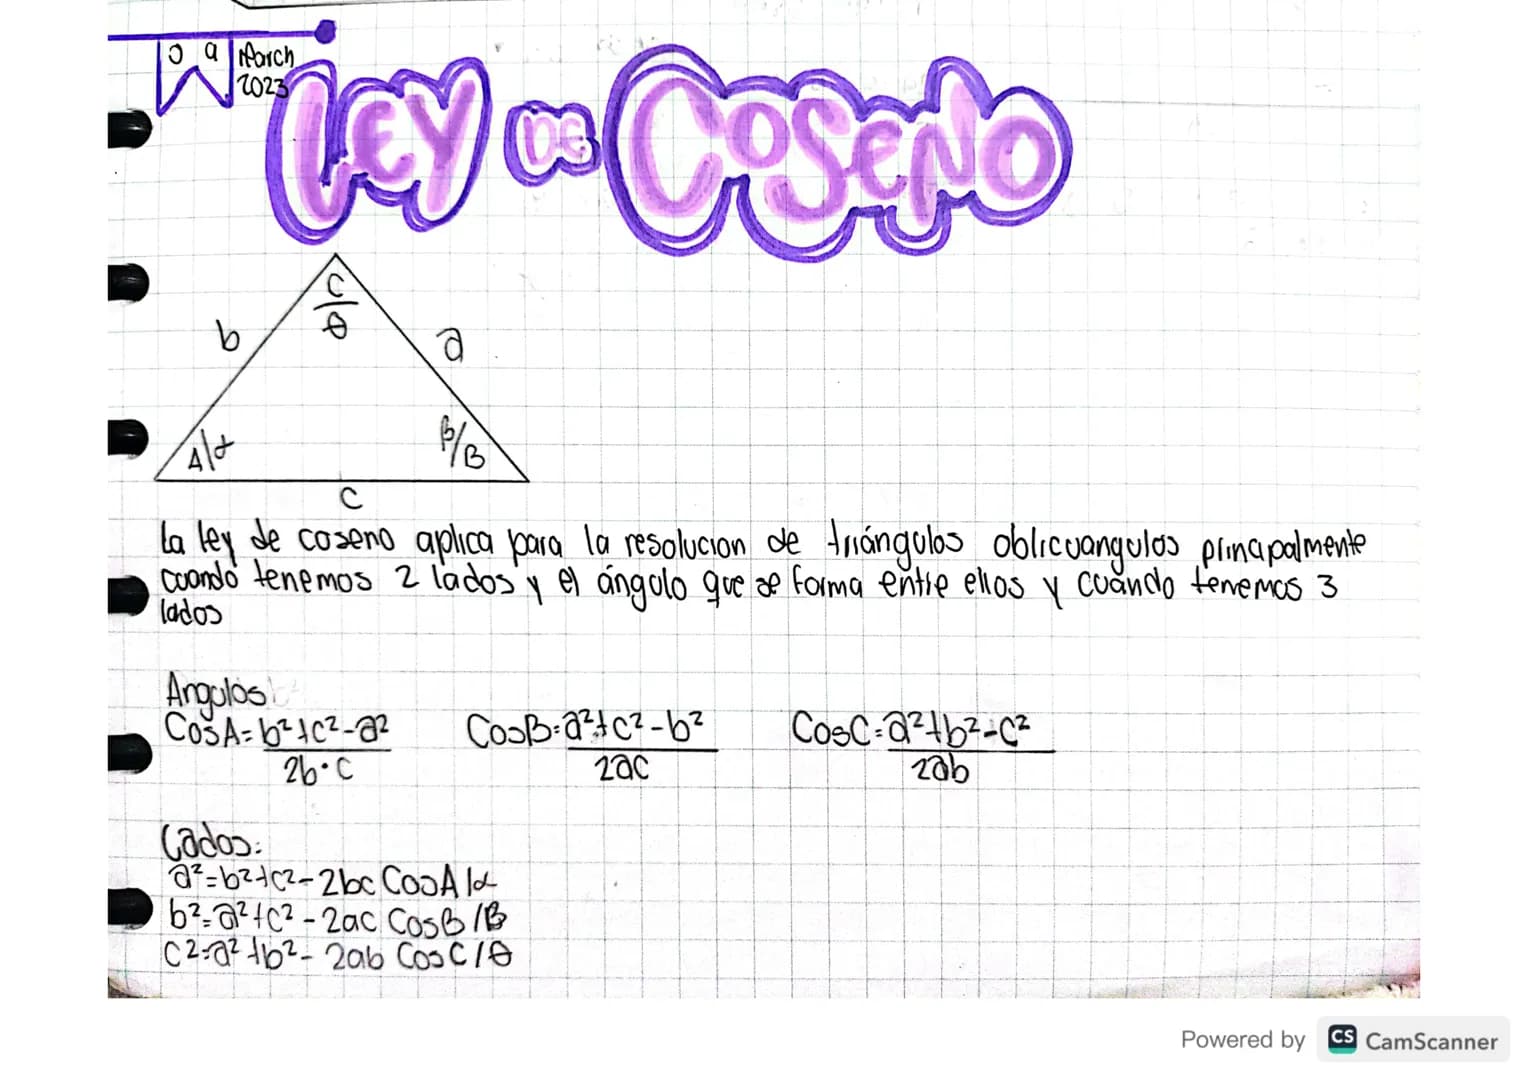 09 March
2023
LEY DE COSENO
C
θ
b
a
A/α
β/B
c
La ley de coseno aplica para la resolucion de triángulos oblicuangulos principalmente
cuando tenemos 2 lados y el ángulo que se forma entre ellos y cuándo tenemos 3
lados
Angulos
CosA=b²+c²-a²
2b·c
CosB=a²+c²-b²
2ac
CosC=a²+b²-c²
2ab
Lados:
a²=b²+c²-2bc CosA/α
b²=a²+c²-2ac CosB/β
c²=a²+b²-2ab CosC/θ
Powered by CS CamScanner